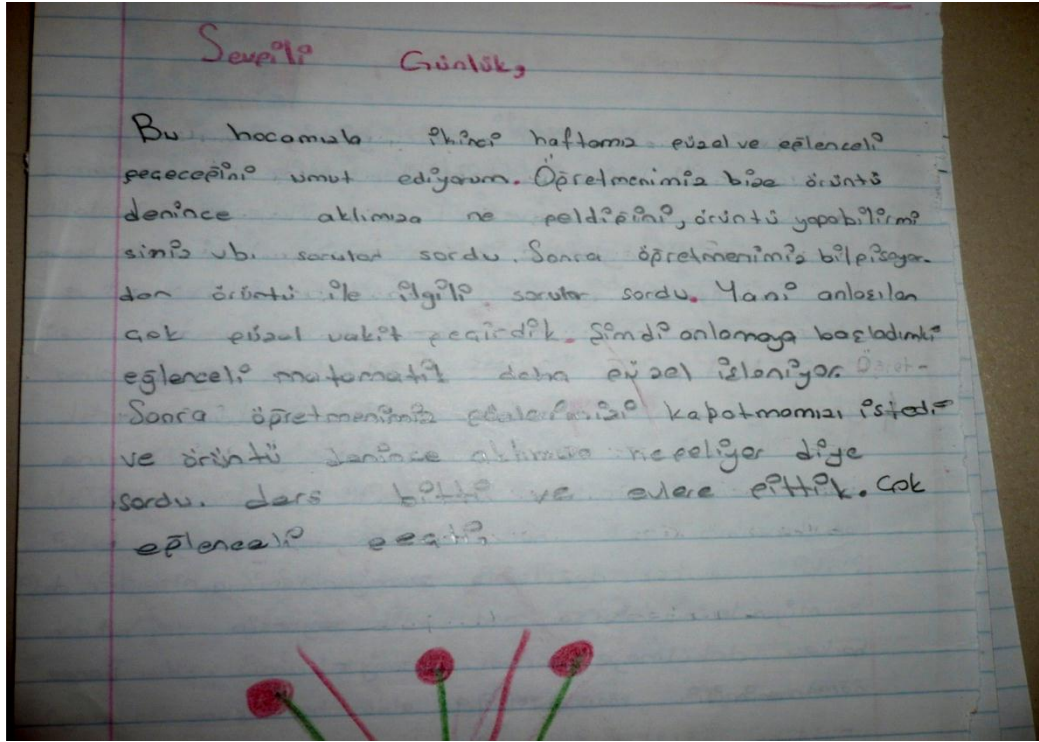 Sevgili Günlük,
Bu hocamızla ikinci haftamız güzel ve eğlenceli
geçeceğini umut ediyorum. Öğretmenimiz bize örüntü
denince aklımıza ne geldiğini, örüntü yapabilirmi
siniz vb. sorular sordu. Sonra öğretmenimiz bilgisayar-
dan örüntü ile ilgili sorular sordu. Yani anlaşılan
çok güzel vakit geçirdik. Şimdi anlamaya başladımki
eğlenceli matematik daha güzel işleniyor.
Sonra öğretmenimiz gözlerimizi kapatmamızı istedi
ve örüntü denince aklımıza ne geliyor diye
sordu. ders bitti ve evlere gittik. Çok
eğlenceli geçti.